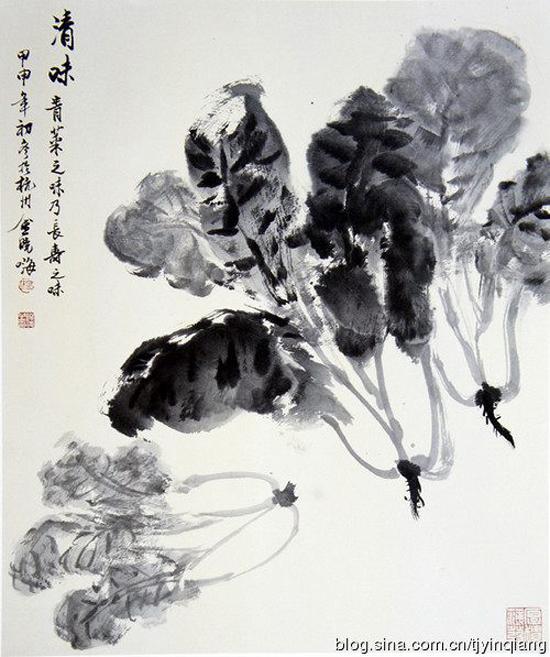 清味
青菜之味乃長壽之味
甲申年初冬於杭州金曉海
blog.sina.com.cn/tjyinqiang